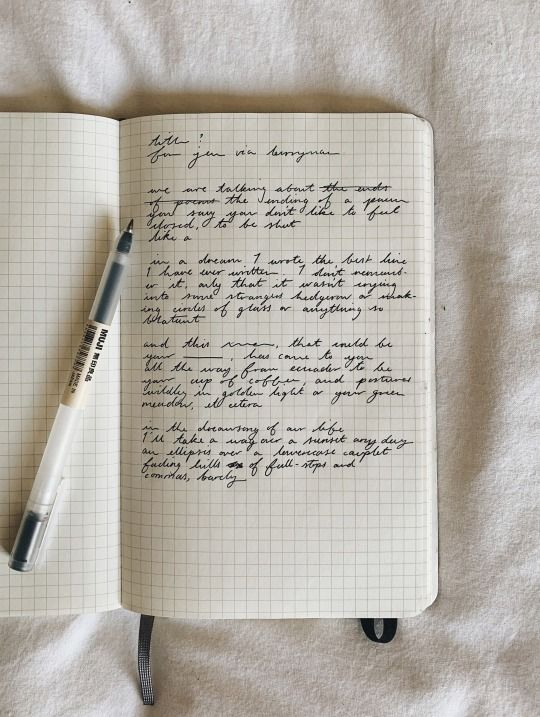 title ?
for jen via berryman
we are talking about the ends
of poems the ending of a poem
you say you don't like to feel
closed, to be shut
like a
in a dream I wrote the best line
I have ever written. I don't rememb-
er it, only that it wasn't crying
into some strangers hedgerow or mak-
ing circles of glass or anything so
blatant
and this, that could be
your ____, has come to you
all the way from ecuador to be
your cup of coffee, and postures
wildly in golden light or your green
meadow, et cetera
in the dreamsong of our life
I'll take a way over a sunset any day
an ellipsis over a lowercase couplet
fading hills of full-stops and
commas, barely
MUJI 無印良品